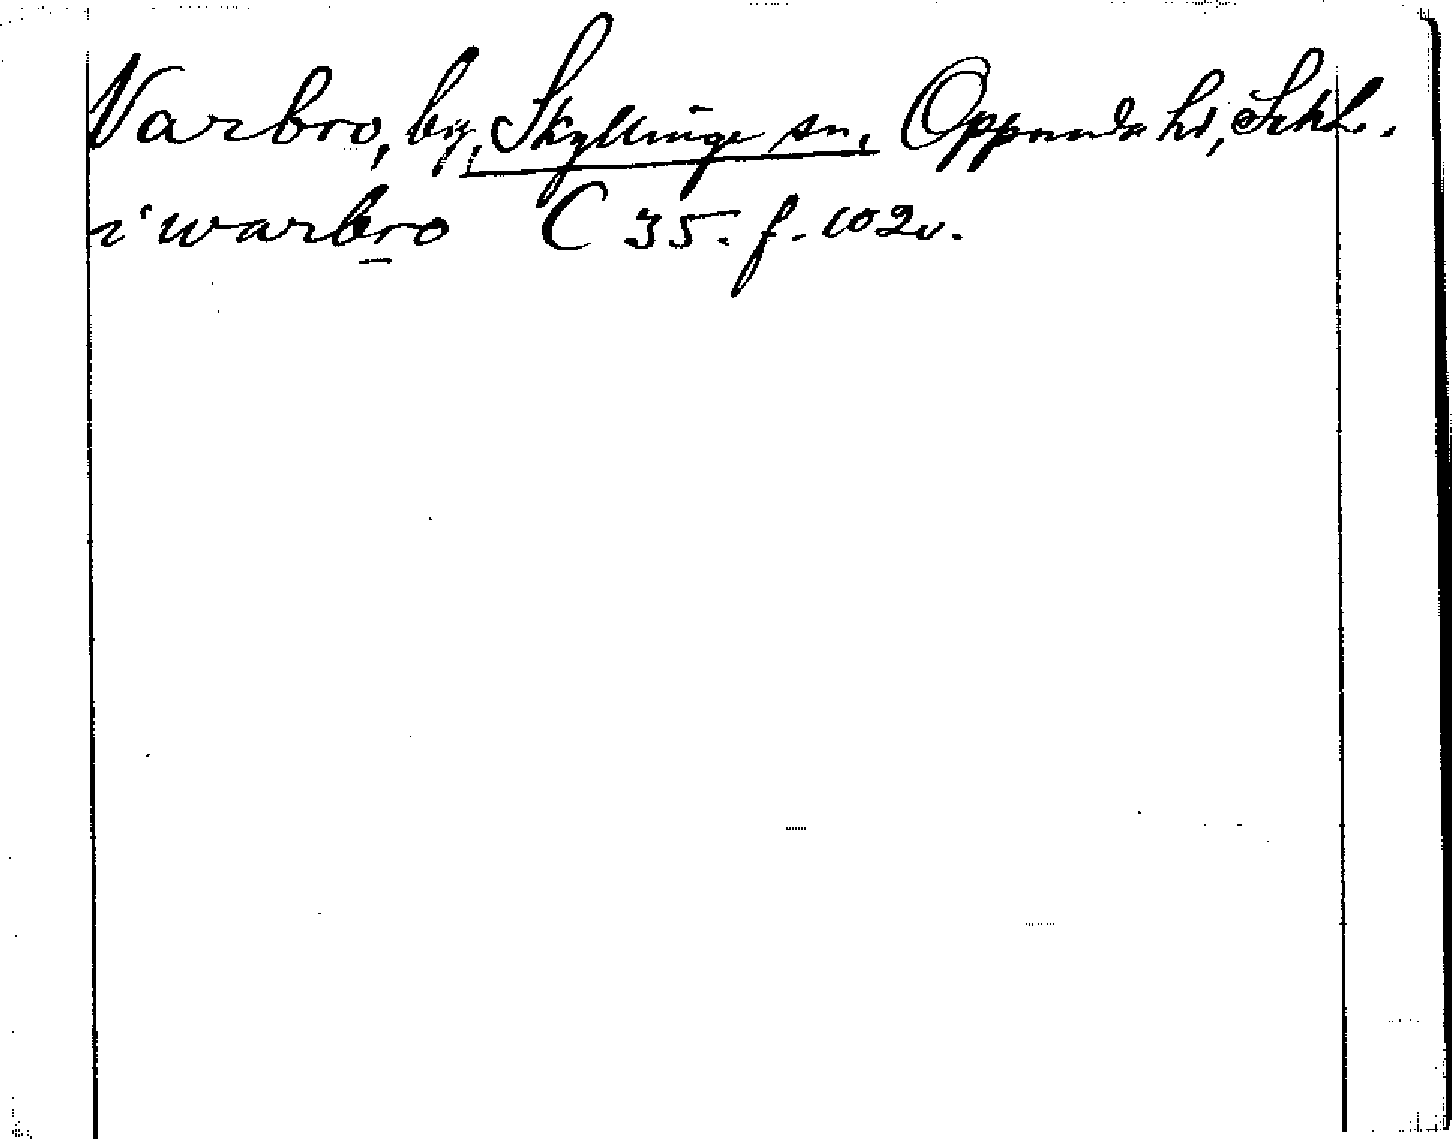 Varbro, by, Skyllinge sn, Oppunda hd, Södl.
i warbro C 35. f. 102v.